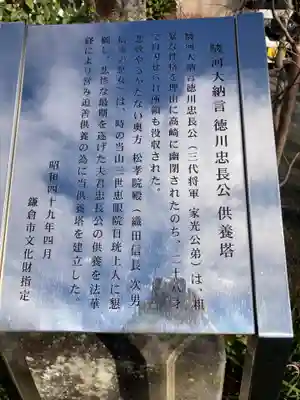 駿河大納言 徳川忠長公 供養塔
駿河大納言徳川忠長公(三代将軍 家光公弟)は、粗
暴な性格を理由に高崎に幽閉されたのち、二十八才
で自刃せられ所領も没収された。
悲歎やるかたない奥方 松孝院殿(織田信長 次男
信雄の息女)は、時の当山三世忠眼院日珖上人に懇
願し、悲惨な最期を遂げた夫君忠長公の供養を法華
経により営み追善供養の為に当供養塔を建立した。
昭和四十九年四月
鎌倉市文化財指定